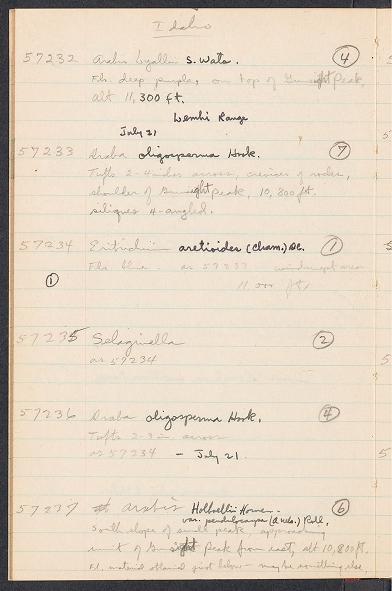 Idaho
57232 Arabis Lyallii S. Wats. ④
Fls. deep purple, on top of Gunsight Peak,
alt 11,300 ft.
Lemhi Range
July 21
57233 Draba oligosperma Hook. ⑦
Tufts 2-4 inches across, crevices of rocks,
shoulder of Gunsight Peak, 10,800 ft.
siliques 4-angled.
57234 Eritrichium aretioides (Cham.) DC. ①
Fls. blue. as 57233 windswept area
① 11,000 ft.
57235 Selaginella ②
as 57234
57236 Draba oligosperma Hook. ④
Tufts 2-3 in. across
as 57234 - July 21.
57237 Arabis Holboellii Hornem. ⑥
var. pendulocarpa (A. Nels.) Roll.
South slope of peak, approaching
summit of Gunsight Peak from east, alt 10,800 ft.
Fl. material obtained just below - may be something else.
5
5
5